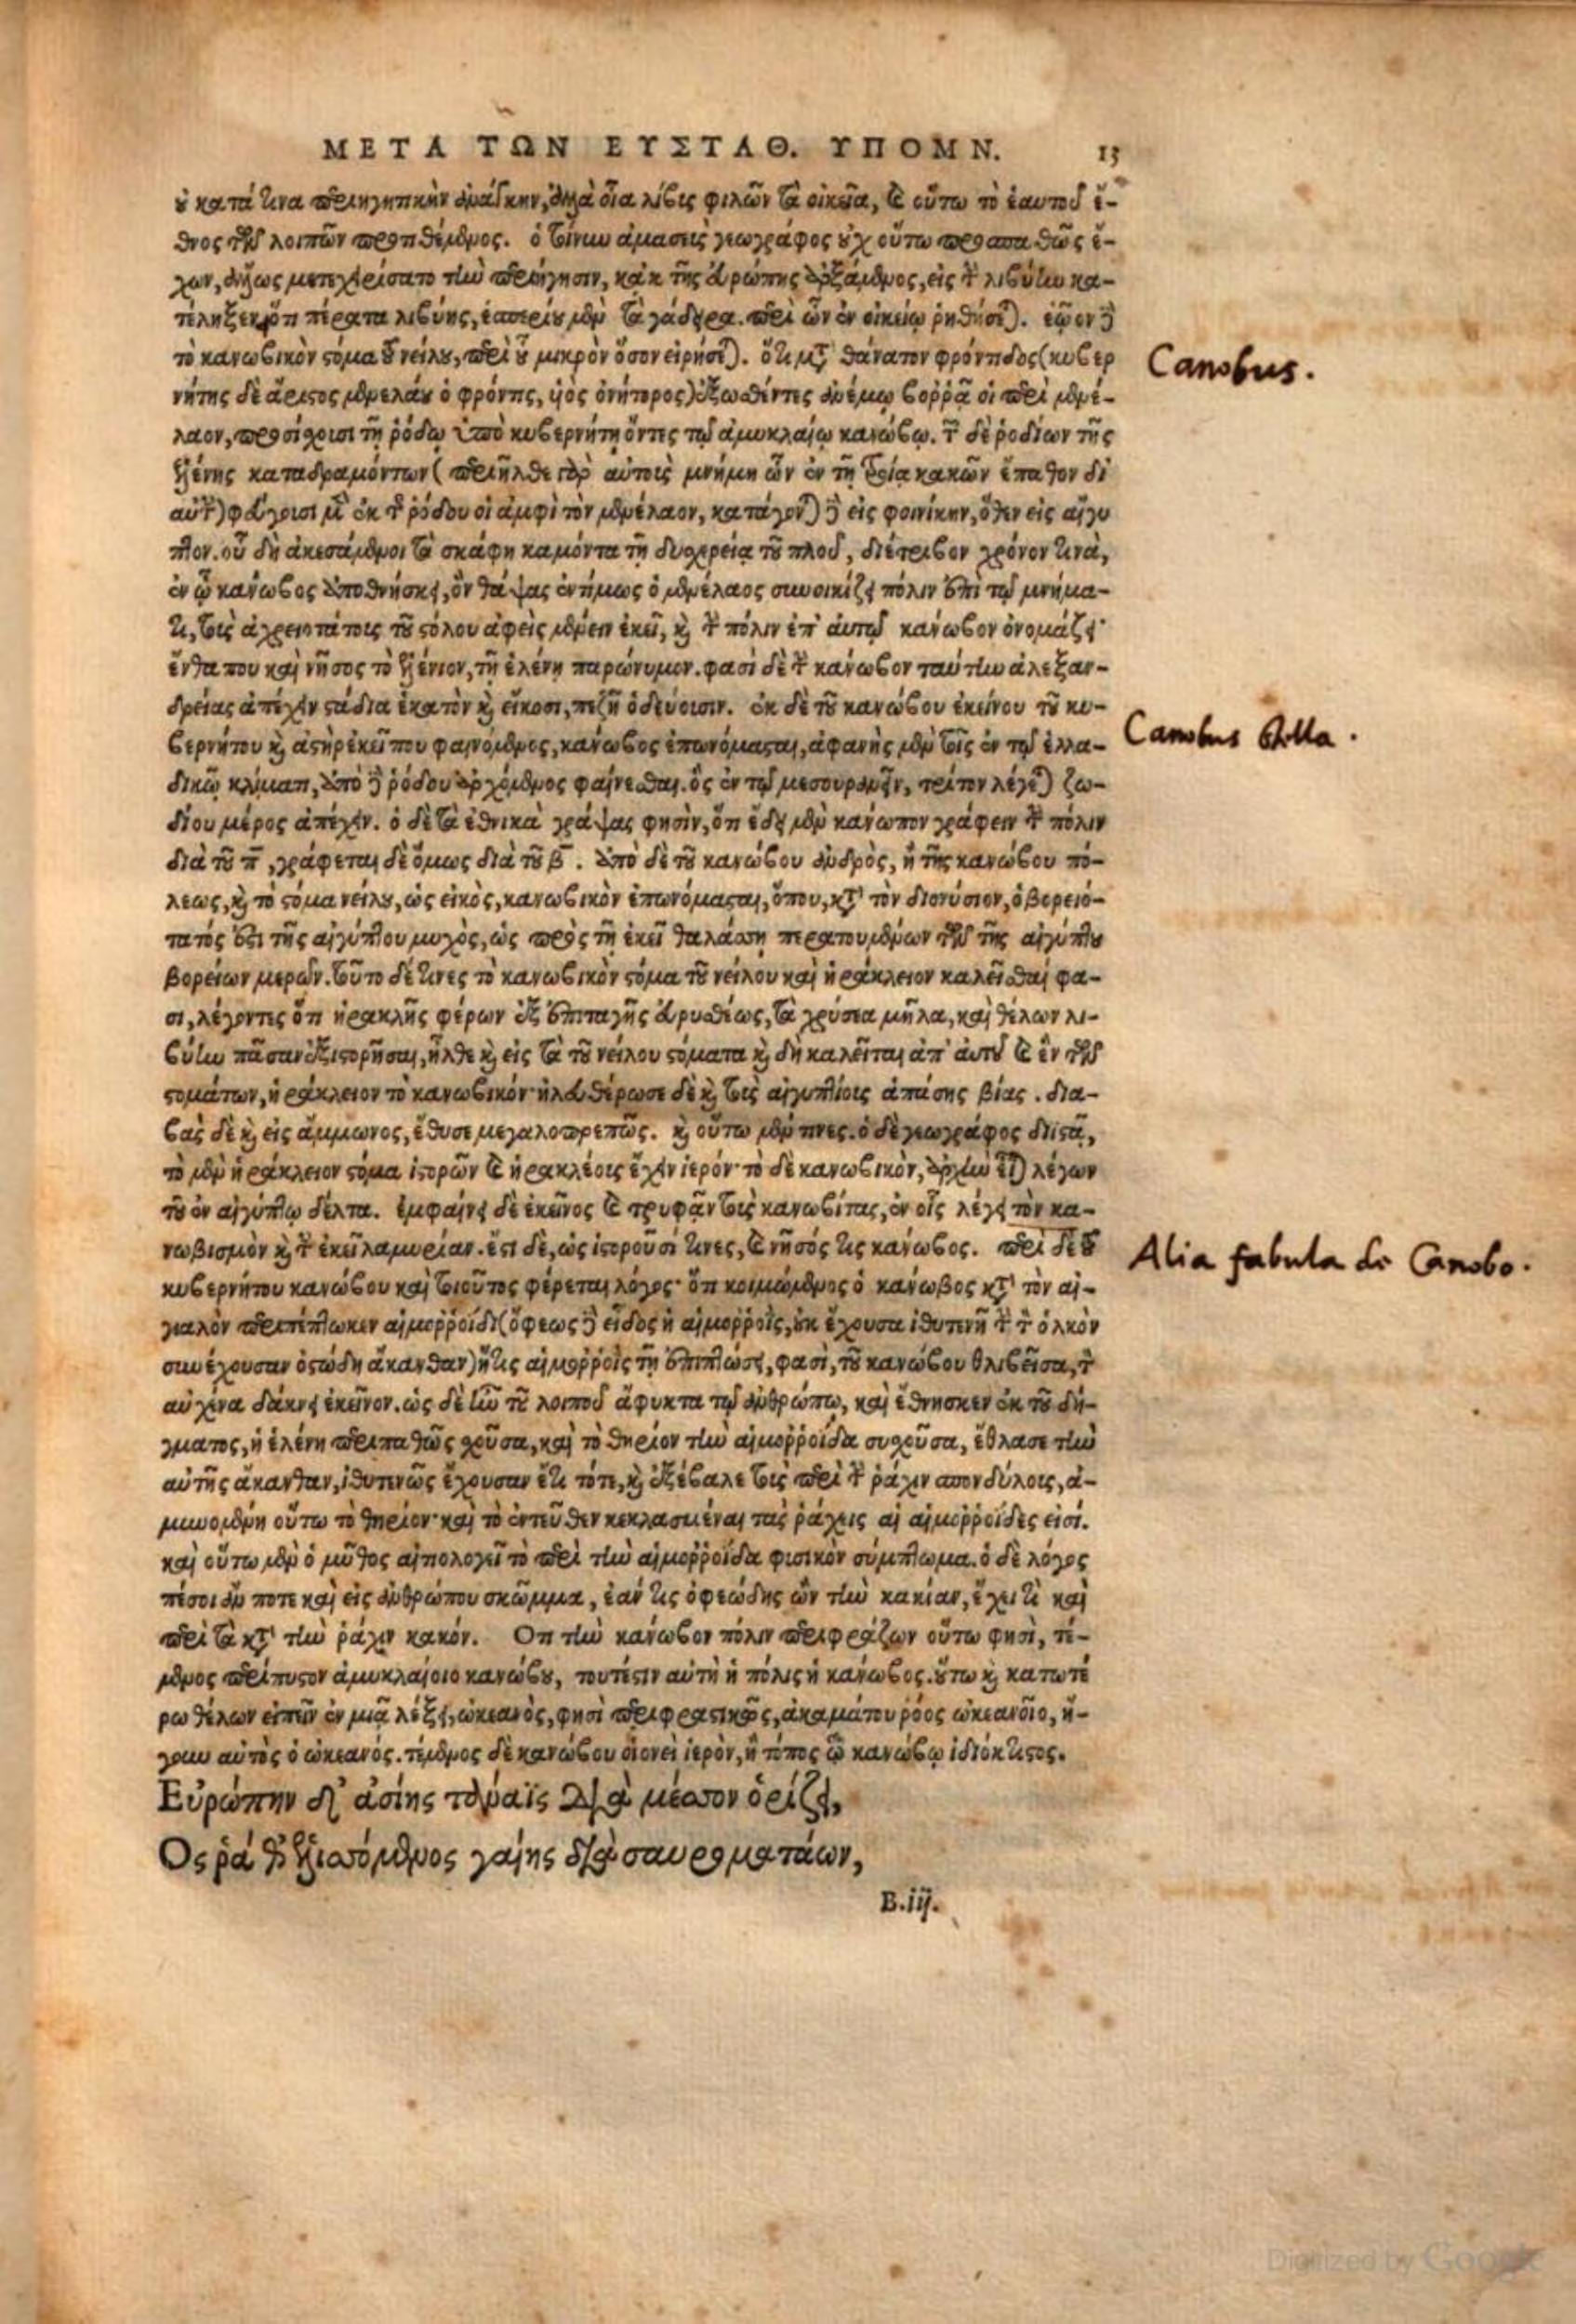 ΜΕΤΑ ΤΩΝ ΕΥΣΤΑΘ. ΥΠΟΜΝ. 13
οὐ κατά τινα περιηγητικὴν ἀνάγκην, ἀλλὰ οἷα λίβυς φιλῶν τὰ οἰκεῖα, καὶ οὕτω τὸ ἑαυτοῦ ἔ-
θνος τῶν λοιπῶν προτιθέμενος. ὁ τοίνυν ἀμασεὺς γεωγράφος οὐχ οὕτω προσπαθῶς ἔ-
χων, ἄλλως μετεχειρίσατο τὴν περιήγησιν, κἀκ τῆς εὐρώπης ἀρξάμενος, εἰς τὴν λιβύην κα-
τέληξεν, ὅτι πέρατα λιβύης, ἑσπερίου μὲν τὰ γάδειρα. περὶ ὧν ἐν οἰκείῳ ῥηθήσεται. ἑῷον δὲ
τὸ κανωβικὸν στόμα τοῦ νείλου, περὶ οὗ μικρὸν ὅσον εἰρήσεται. ὅτι μετὰ θάνατον φρόντιδος (κυβερ
νήτης δὲ ἄριστος μενελάου ὁ φρόντις, υἱὸς ὀνήτορος) ἐξωσθέντες ἀνέμῳ βορρᾷ οἱ περὶ μενέ-
λαον, προσίσχουσι τῇ ῥόδῳ ὑπὸ κυβερνήτῃ ὄντες τῷ ἀμυκλαίῳ κανώβῳ. τῶν δὲ ῥοδίων τῆς
ἑλένης καταδραμόντων (περιῆλθε γὰρ αὐτοῖς μνήμη ὧν ἐν τῇ τροίᾳ κακῶν ἔπαθον δι
αὐτὴν) φεύγουσι μὲν ἐκ τῆς ῥόδου οἱ ἀμφὶ τὸν μενέλαον, κατάγονται δὲ εἰς φοινίκην, ὅθεν εἰς αἴγυ
πτον. οὗ δὴ ἀκεσάμενοι τὰ σκάφη καμόντα τῇ δυσχερείᾳ τοῦ πλοῦ, διέτριβον χρόνον τινὰ,
ἐν ᾧ κάνωβος ἀποθνήσκει, ὃν θάψας ἐντίμως ὁ μενέλαος συνοικίζει πόλιν ἐπὶ τῷ μνήμα-
τι, τοὺς ἀχρειοτάτους τοῦ στόλου ἀφεὶς μένειν ἐκεῖ, καὶ τὴν πόλιν ἐπ' αὐτῷ κάνωβον ὀνομάζει·
ἔνθα που καὶ νῆσος τὸ ἑλένιον, τῇ ἑλένῃ παρώνυμον. φασὶ δὲ τὴν κάνωβον ταύτην ἀλεξαν-
δρείας ἀπέχειν στάδια ἑκατὸν καὶ εἴκοσι, πεζῇ ὁδεύουσιν. ἐκ δὲ τοῦ κανώβου ἐκείνου τοῦ κυ-
βερνήτου καὶ ἀστὴρ ἐκεῖ που φαινόμενος, κάνωβος ἐπωνόμασται, ἀφανὴς μὲν τοῖς ἐν τῷ ἑλλα-
δικῷ κλίματι, ἀπὸ δὲ ῥόδου ἀρχόμενος φαίνεσθαι. ὃς ἐν τῷ μεσουρανεῖν, τρίτον λέγεται ζω-
δίου μέρος ἀπέχειν. ὁ δὲ τὰ ἐθνικὰ γράψας φησὶν, ὅτι ἔδει μὲν κάνωπον γράφειν τὴν πόλιν
διὰ τοῦ π, γράφεται δὲ ὅμως διὰ τοῦ β. ἀπὸ δὲ τοῦ κανώβου ἀνδρὸς, ἢ τῆς κανώβου πό-
λεως, καὶ τὸ στόμα νείλου, ὡς εἰκὸς, κανωβικὸν ἐπωνόμασται, ὅπου, κατὰ τὸν διονύσιον, ὁ βορειό-
τατός ἐστι τῆς αἰγύπτου μυχὸς, ὡς πρὸς τῇ ἐκεῖ θαλάσσῃ περατουμένων τῶν τῆς αἰγύπτου
βορείων μερῶν. τοῦτο δέ τινες τὸ κανωβικὸν στόμα τοῦ νείλου καὶ ἡράκλειον καλεῖσθαί φα-
σι, λέγοντες ὅτι ἡρακλῆς φέρων ἐξ ἐπιταγῆς εὐρυσθέως, τὰ χρύσεα μῆλα, καὶ θέλων λι-
βύην πᾶσαν ἐξιστορῆσαι, ἦλθε καὶ εἰς τὰ τοῦ νείλου στόματα καὶ δὴ καλεῖται ἀπ' αὐτοῦ καὶ ἓν τῶν
στομάτων, ἡράκλειον τὸ κανωβικόν· ἠλευθέρωσε δὲ καὶ τοὺς αἰγυπτίους ἁπάσης βίας. δια-
βὰς δὲ καὶ εἰς ἄμμωνος, ἔθυσε μεγαλοπρεπῶς. καὶ οὕτω μέν τινες. ὁ δὲ γεωγράφος διιστᾷ,
τὸ μὲν ἡράκλειον στόμα ἱστορῶν καὶ ἡρακλέους ἔχειν ἱερόν· τὸ δὲ κανωβικὸν, ἀρχὴν εἶναι λέγων
τοῦ ἐν αἰγύπτῳ δέλτα. ἐμφαίνει δὲ ἐκεῖνος καὶ τρυφᾷν τοὺς κανωβίτας, ἐν οἷς λέγει τὸν κα-
νωβισμὸν καὶ τὴν ἐκεῖ λαμυρίαν. ἔστι δὲ, ὡς ἱστοροῦσί τινες, καὶ νῆσός τις κάνωβος. περὶ δὲ τοῦ
κυβερνήτου κανώβου καὶ τοιοῦτος φέρεται λόγος· ὅτι κοιμώμενος ὁ κάνωβος κατὰ τὸν αἰ-
γιαλὸν περιπέπτωκεν αἱμορροΐδι (ὄφεως δὲ εἶδος ἡ αἱμορροῒς, οὐκ ἔχουσα ἰθυτενῆ τὴν τὸν ὁλκὸν
συνέχουσαν ὀστώδη ἄκανθαν) ἥτις αἱμορροῒς τῇ ἐπιπτώσει, φασὶ, τοῦ κανώβου θλιβεῖσα, τὸν
αὐχένα δάκνει ἐκεῖνον. ὡς δὲ ἦν τὰ λοιποῦ ἄφυκτα τῷ ἀνθρώπῳ, καὶ ἔθνησκεν ἐκ τοῦ δή-
γματος, ἡ ἑλένη περιπαθῶς σχοῦσα, καὶ τὸ θηρίον τὴν αἱμορροΐδα συσχοῦσα, ἔθλασε τὴν
αὐτῆς ἄκανθαν, ἰθυτενῶς ἔχουσαν ἔτι τότε, καὶ ἐξέβαλε τοὺς περὶ τὴν ῥάχιν σπονδύλους, ἀ-
μυνομένη οὕτω τὸ θηρίον· καὶ τὸ ἐντεῦθεν κεκλασμέναι τὰς ῥάχεις αἱ αἱμορροΐδες εἰσί.
καὶ οὕτω μὲν ὁ μῦθος αἰτιολογεῖ τὸ περὶ τὴν αἱμορροΐδα φυσικὸν σύμπτωμα. ὁ δὲ λόγος
πέσοι ἄν ποτε καὶ εἰς ἀνθρώπου σκῶμμα, ἐάν τις ὀφεώδης ὢν τὴν κακίαν, ἔχει τὶ καὶ
περὶ τὰ κατὰ τὴν ῥάχιν κακόν. Οτι τὴν κάνωβον πόλιν περιφράζων οὕτω φησὶ, τέ-
μενος περίπυστον ἀμυκλαίοιο κανώβου, τουτέστιν αὐτὴ ἡ πόλις ἡ κάνωβος. οὕτω καὶ κατωτέ
ρω θέλων εἰπεῖν ἐν μιᾷ λέξει, ὠκεανὸς, φησὶ περιφραστικῶς, ἀκαμάτου ῥόος ὠκεανοῖο, ἤ-
γουν αὐτὸς ὁ ὠκεανός. τέμενος δὲ κανώβου οἱονεὶ ἱερὸν, ἢ τόπος τῷ κανώβῳ ἰδιόκτιστος.
Εὐρώπην δ' ἀσίης τάναϊς διὰ μέσσον ὁρίζει,
Ος ῥά θ' ἑλισσόμενος γαίης διὰ σαυροματάων,
B.iij.
Canobus.
Canobus stella.
Alia fabula de Canobo.
Digitized by Google